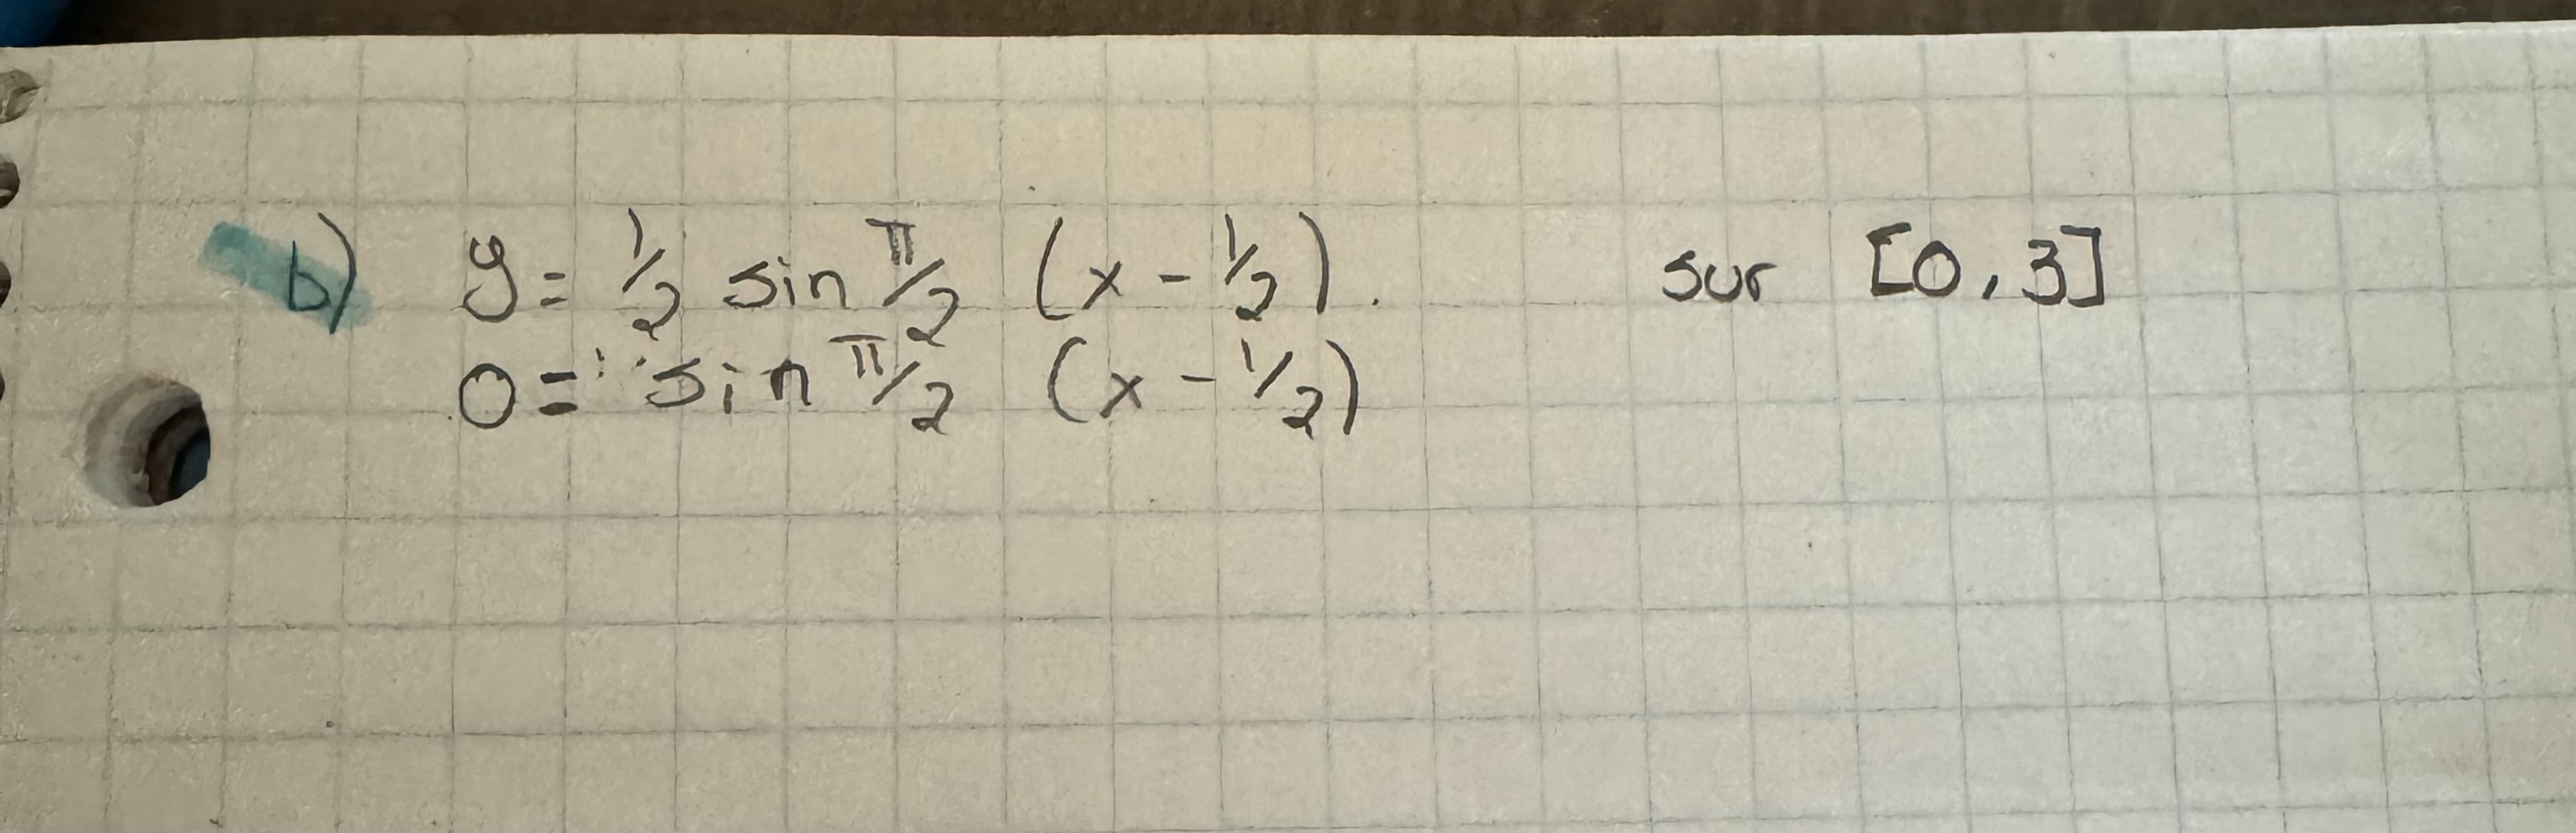 b) y = 1/2 sin π/2 (x - 1/2). sur [0, 3]
0 = sin π/2 (x - 1/2)